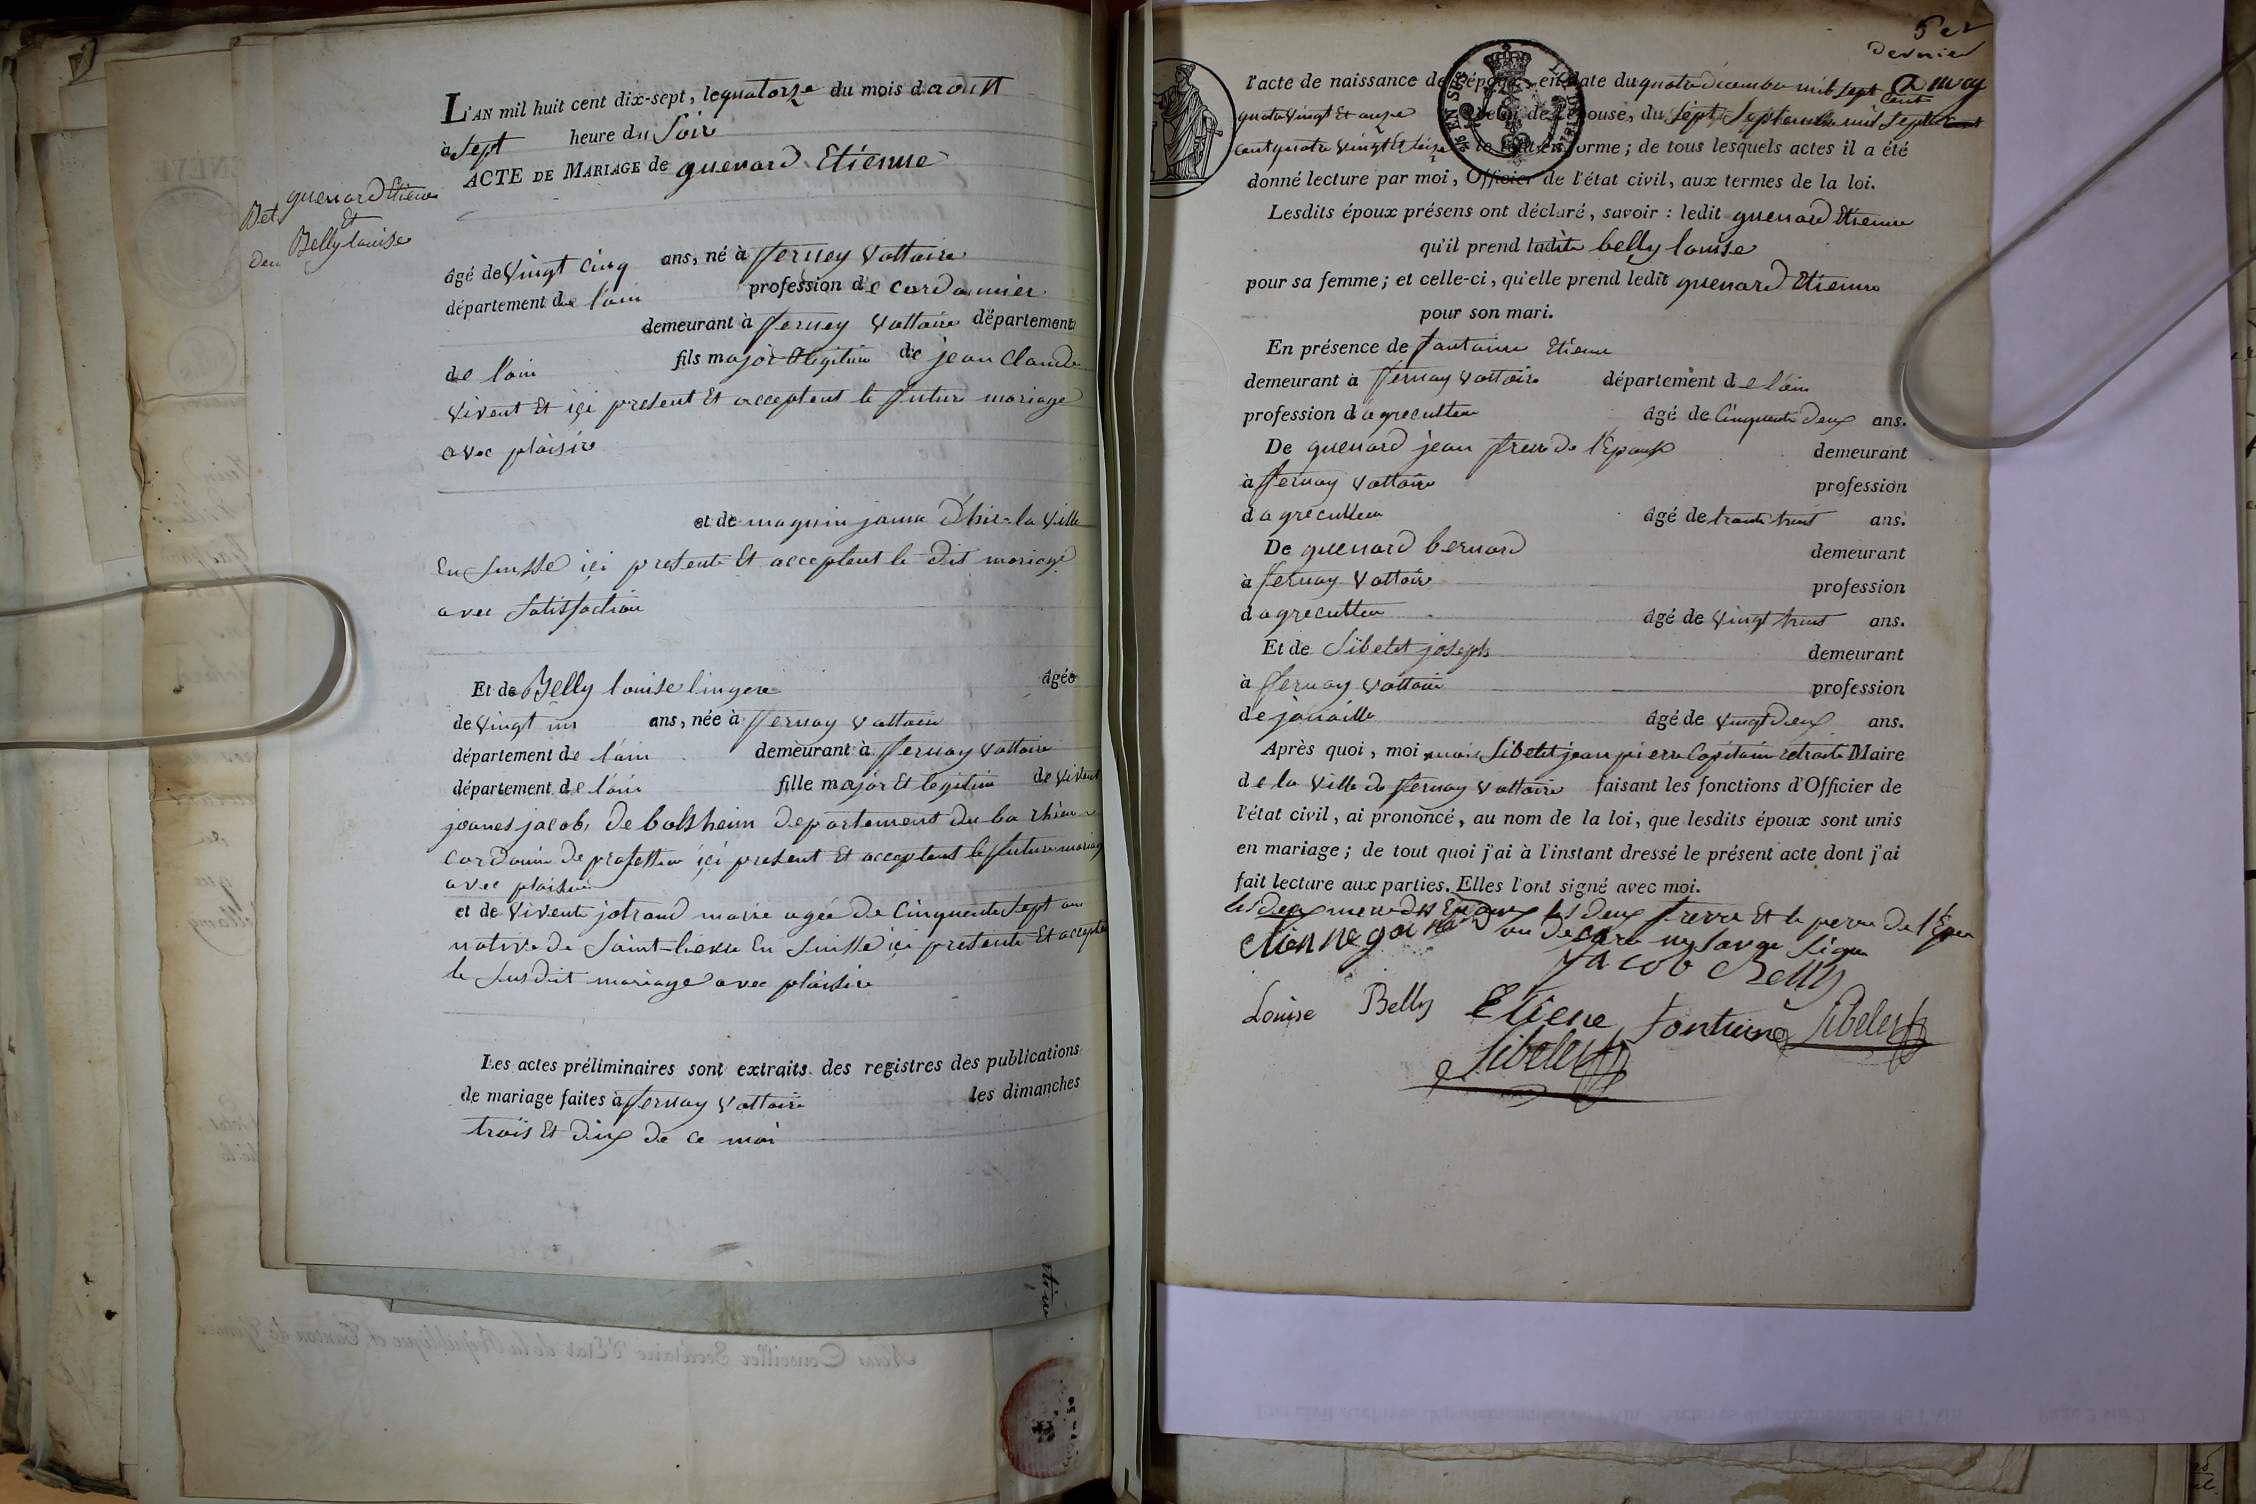 L'AN mil huit cent dix-sept, le quatorze du mois d'aoust
à Sept heure du Soir
ACTE DE MARIAGE de guenard Etienne
Det guenard Etienne
Et
deu Belly louise
âgé de vingt cinq ans, né à ferney Voltaire
département de l'ain profession de cordonnier
demeurant à ferney Voltaire département
de l'ain fils major et legitime de jean Claude
vivent Et içi present Et acceptent le future mariage
avec plaisir
et de maguin janne
En Suisse içi presente Et acceptent le dit mariage
avec Satisfaction
Et de Belly louise lingere âgée
de vingt un ans, née à fernay voltaire
département de l'ain demeurant à fernay voltaire
département de l'ain fille major Et legitime de vivent
joanes jacob, de bolsheim departement du ba rhien
cordonier de profession içi present Et acceptent le future mariage
avec plaisir
et de vivente jotrand marie agée de Cinquente Sept an
native de Saint-lierre En Suisse içi presente Et accepte
le Susdit mariage avec plaisir
Les actes préliminaires sont extraits des registres des publications
de mariage faites à fernay voltaire les dimanches
trois Et dix de ce moi
5 et
dernier
l'acte de naissance de l'époux, en date du quatre décembre mil sept cent
quatre vingt Et onze celui de l'épouse, du Sept Septembre mil Sept
cent quatre vingt Et Seize le tout en forme; de tous lesquels actes il a été
donné lecture par moi, Officier de l'état civil, aux termes de la loi.
Lesdits époux présens ont déclaré, savoir: ledit guenard Etienne
qu'il prend ladite belly louise
pour sa femme; et celle-ci, qu'elle prend ledit guenard Etienne
pour son mari.
En présence de fontaine Etienne
demeurant à fernay voltaire département de l'ain
profession d'agreculteur âgé de Cinquente deux ans.
De guenard jean frere de l'Epoux demeurant
à fernay voltaire profession
d agreculteur âgé de trante huit ans.
De guenard bernard demeurant
à fernay voltaire profession
d agreculteur âgé de vingt huit ans.
Et de Sibelet joseph demeurant
à fernay voltaire profession
de jouaille âgé de vingt deux ans.
Après quoi, moi Sibelet jean pierre Capitaine retraite Maire
de la ville de fernay voltaire faisant les fonctions d'Officier de
l'état civil, ai prononcé, au nom de la loi, que lesdits époux sont unis
en mariage; de tout quoi j'ai à l'instant dressé le présent acte dont j'ai
fait lecture aux parties. Elles l'ont signé avec moi.
les deux mere des Epoux les deux frerre Et le perre de l'Epou
on declare ny savoir Signe
Jacob Belly
Louise Belly Etiene fontaine Sibelet
Sibelet